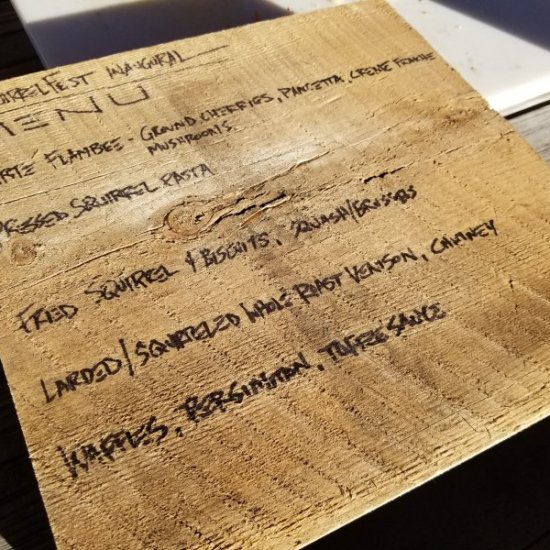 IRRELFEST INAUGURAL
MENU
RTE FLAMBEE - GROUND CHERRIES, PANCETTA, CREME FRAICHE
MUSHROOMS
PRESSED SQUIRREL PASTA
FRIED SQUIRREL & BISCUITS, SQUASH/BRUSSELS
LARDED/SQUIRRELED WHOLE ROAST VENISON, CHUTNEY
WAFFLES, PERSIMMON, TOFFEE SAUCE